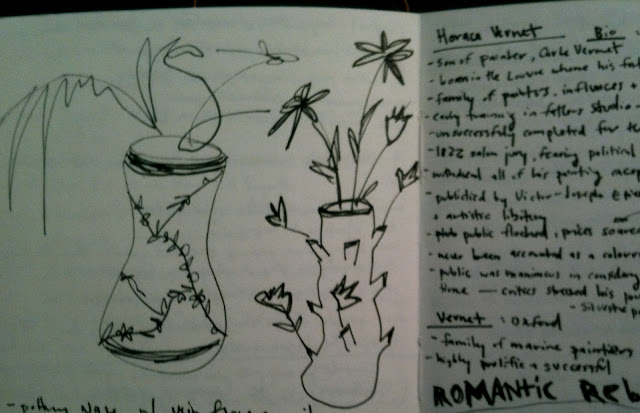 Horace Vernet Bio
- son of painter, Carle Vernet
- born in the Louvre where his
- family of painters, influences +
- early training in fathers studio
- unsuccessfully completed for the
- 1822 salon jury, fearing political
- withdrew all of his painting except
- publicized by Victor-Joseph
+ artistic
public flocked, prices soared
- never been accounted as a colouri
- public was unanimous in
time — critics stressed his
- Silvestre
Vernet : Oxford
- family of marine painters
- highly prolific & successful
ROMANTIC REL
- pottery vase w/